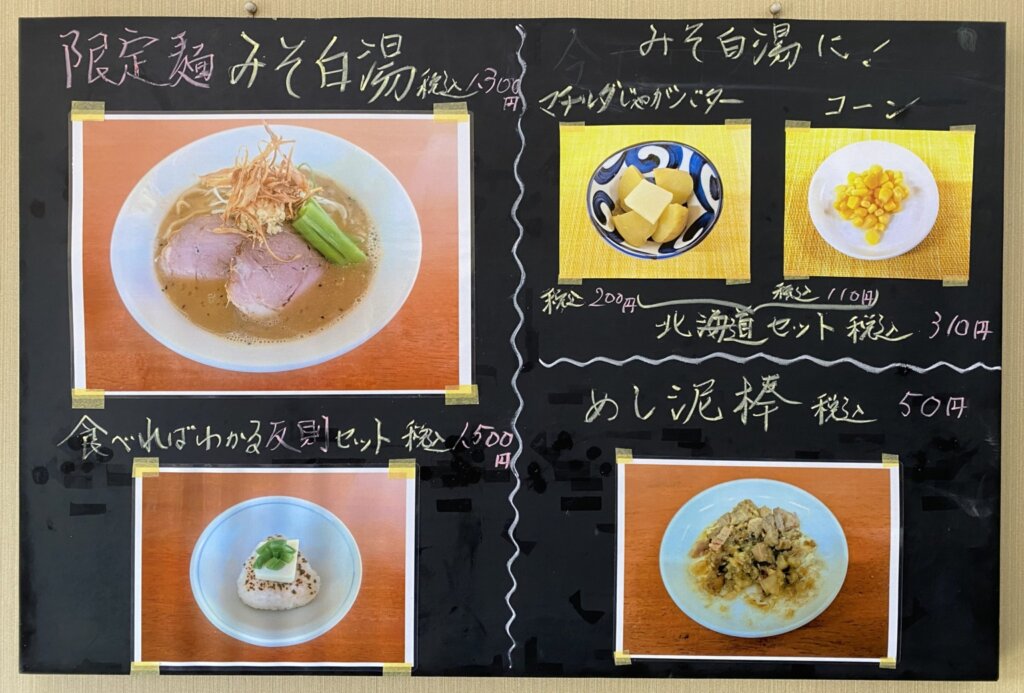 限定麺 みそ白湯 税込1,300円
食べればわかる反則セット 税込1,500円
みそ白湯に!
マチルダじゃがバター
税込 200円
コーン
税込 110円
北海道セット 税込 310円
めし泥棒 税込 50円